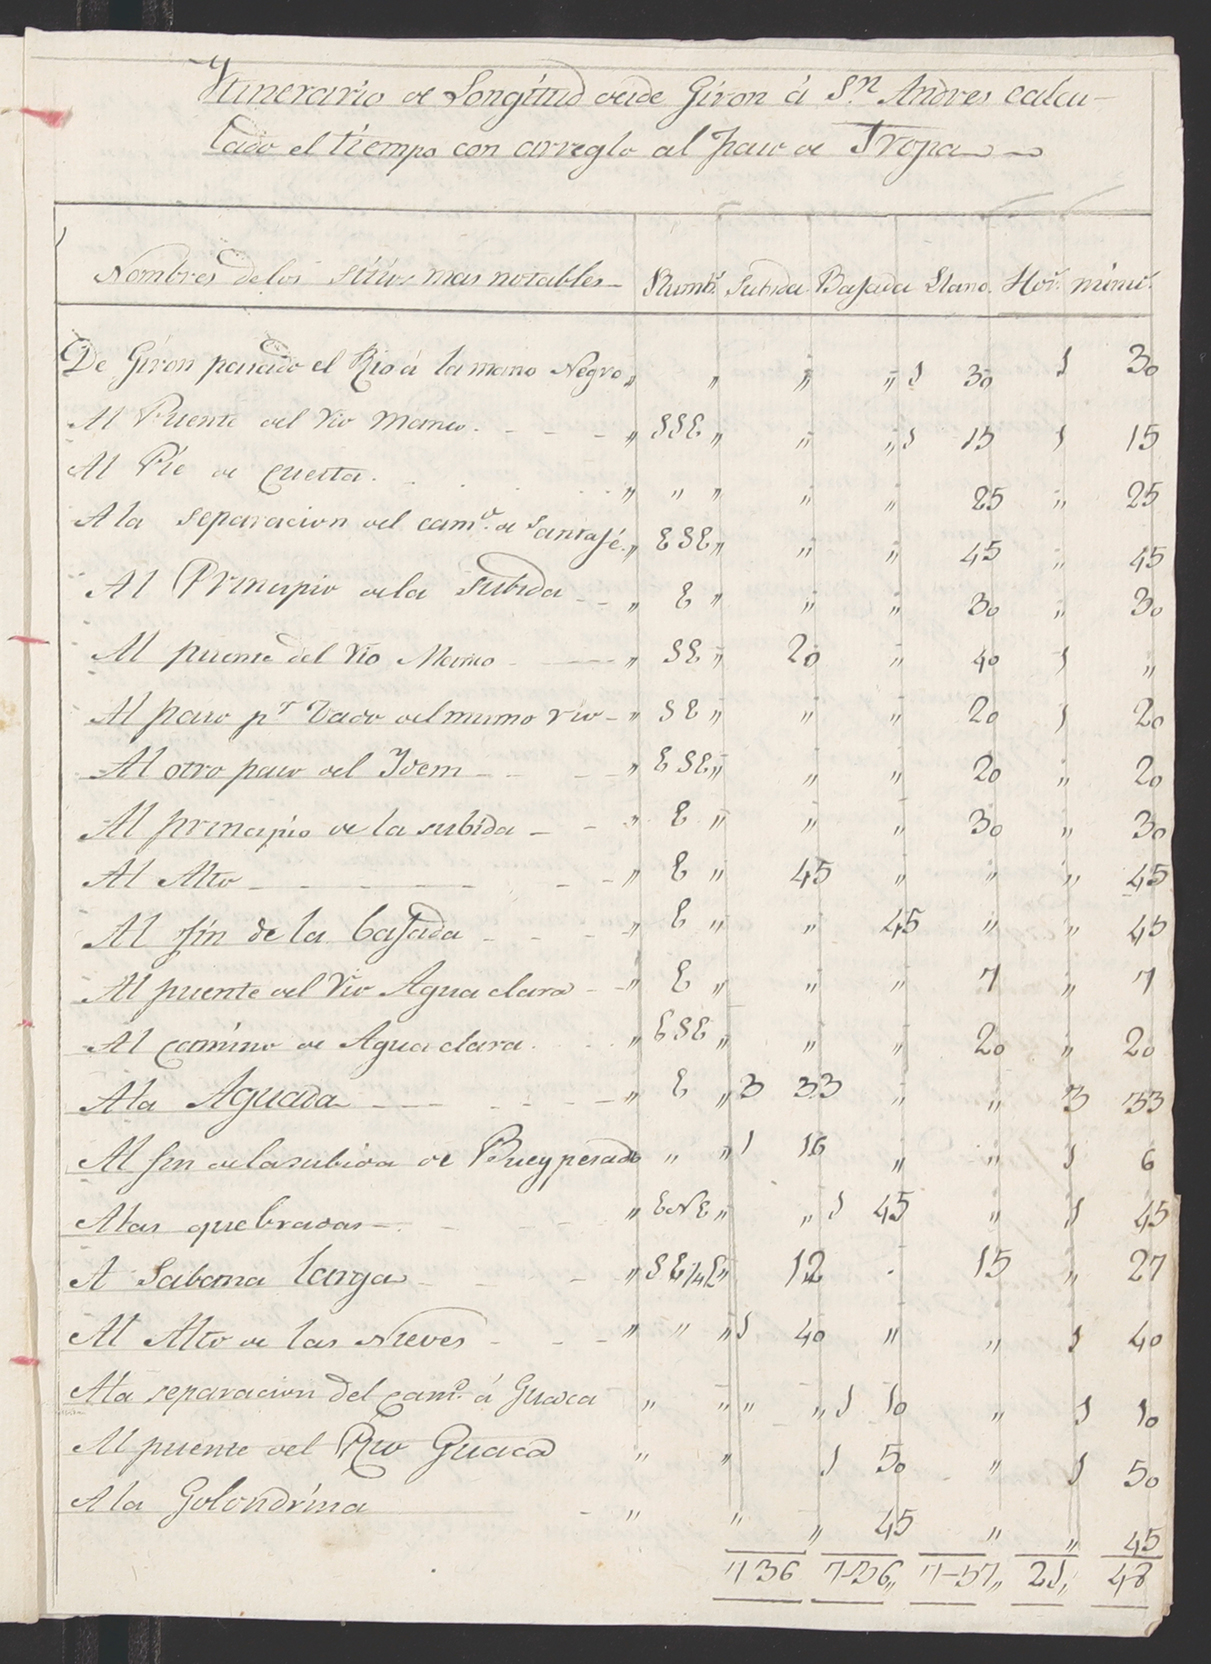 Ytinerario de Longitud desde Giron á S.n Andres calcu-
lado el tiempo con arreglo al paso de Tropa
Nombres de los sitios mas notables Rumb.s Subida Bajada Llano. Hor.s minu.s
De Giron pasado el Rio á la mano Negra „ „ „ „ 1 30 1 30
Al Puente del Rio Manco. - - - „ SSE „ „ „ 1 15 1 15
Al Pie de Cuesta. „ „ „ „ „ 25 „ 25
A la separacion del cam.o de Santafé. „ ESE „ „ „ 45 „ 45
Al Principio de la subida - - „ E „ „ „ 30 „ 30
Al puente del Rio Manco - - - „ SE „ 20 „ 40 1 „
Al paso p.r Vado del mismo rio - „ SE „ „ „ 20 1 20
Al otro paso del Idem - - - „ ESE „ „ „ 20 „ 20
Al principio de la subida - - „ E „ „ „ 30 „ 30
Al Alto - - - - - - „ E „ 45 „ „ „ 45
Al fin de la bajada - - - „ E „ „ 45 „ „ 45
Al puente del Rio Agua clara - - „ E „ „ „ 7 „ 7
Al camino de Agua clara. „ ESE „ „ „ 20 „ 20
A la Aguada - - - - - - „ E „ 3 33 „ „ 3 33
Al fin de la subida de Buey pesado „ „ 1 16 „ „ 1 6
A las quebradas - - - - „ ENE „ „ 1 45 „ 1 45
A Sabana larga - - - „ SE 1/4 E „ 12 - 15 „ 27
Al Alto de las Nieves - - - „ „ „ 1 40 „ „ 1 40
A la separacion del cam.o á Guaca „ „ „ „ 1 10 „ 1 10
Al puente del Rio Guaca „ „ 1 50 „ 1 50
A la Golondrina - „ „ „ 45 „ „ 45
7 36 7-36 „ 7-57 „ 21 „ 48